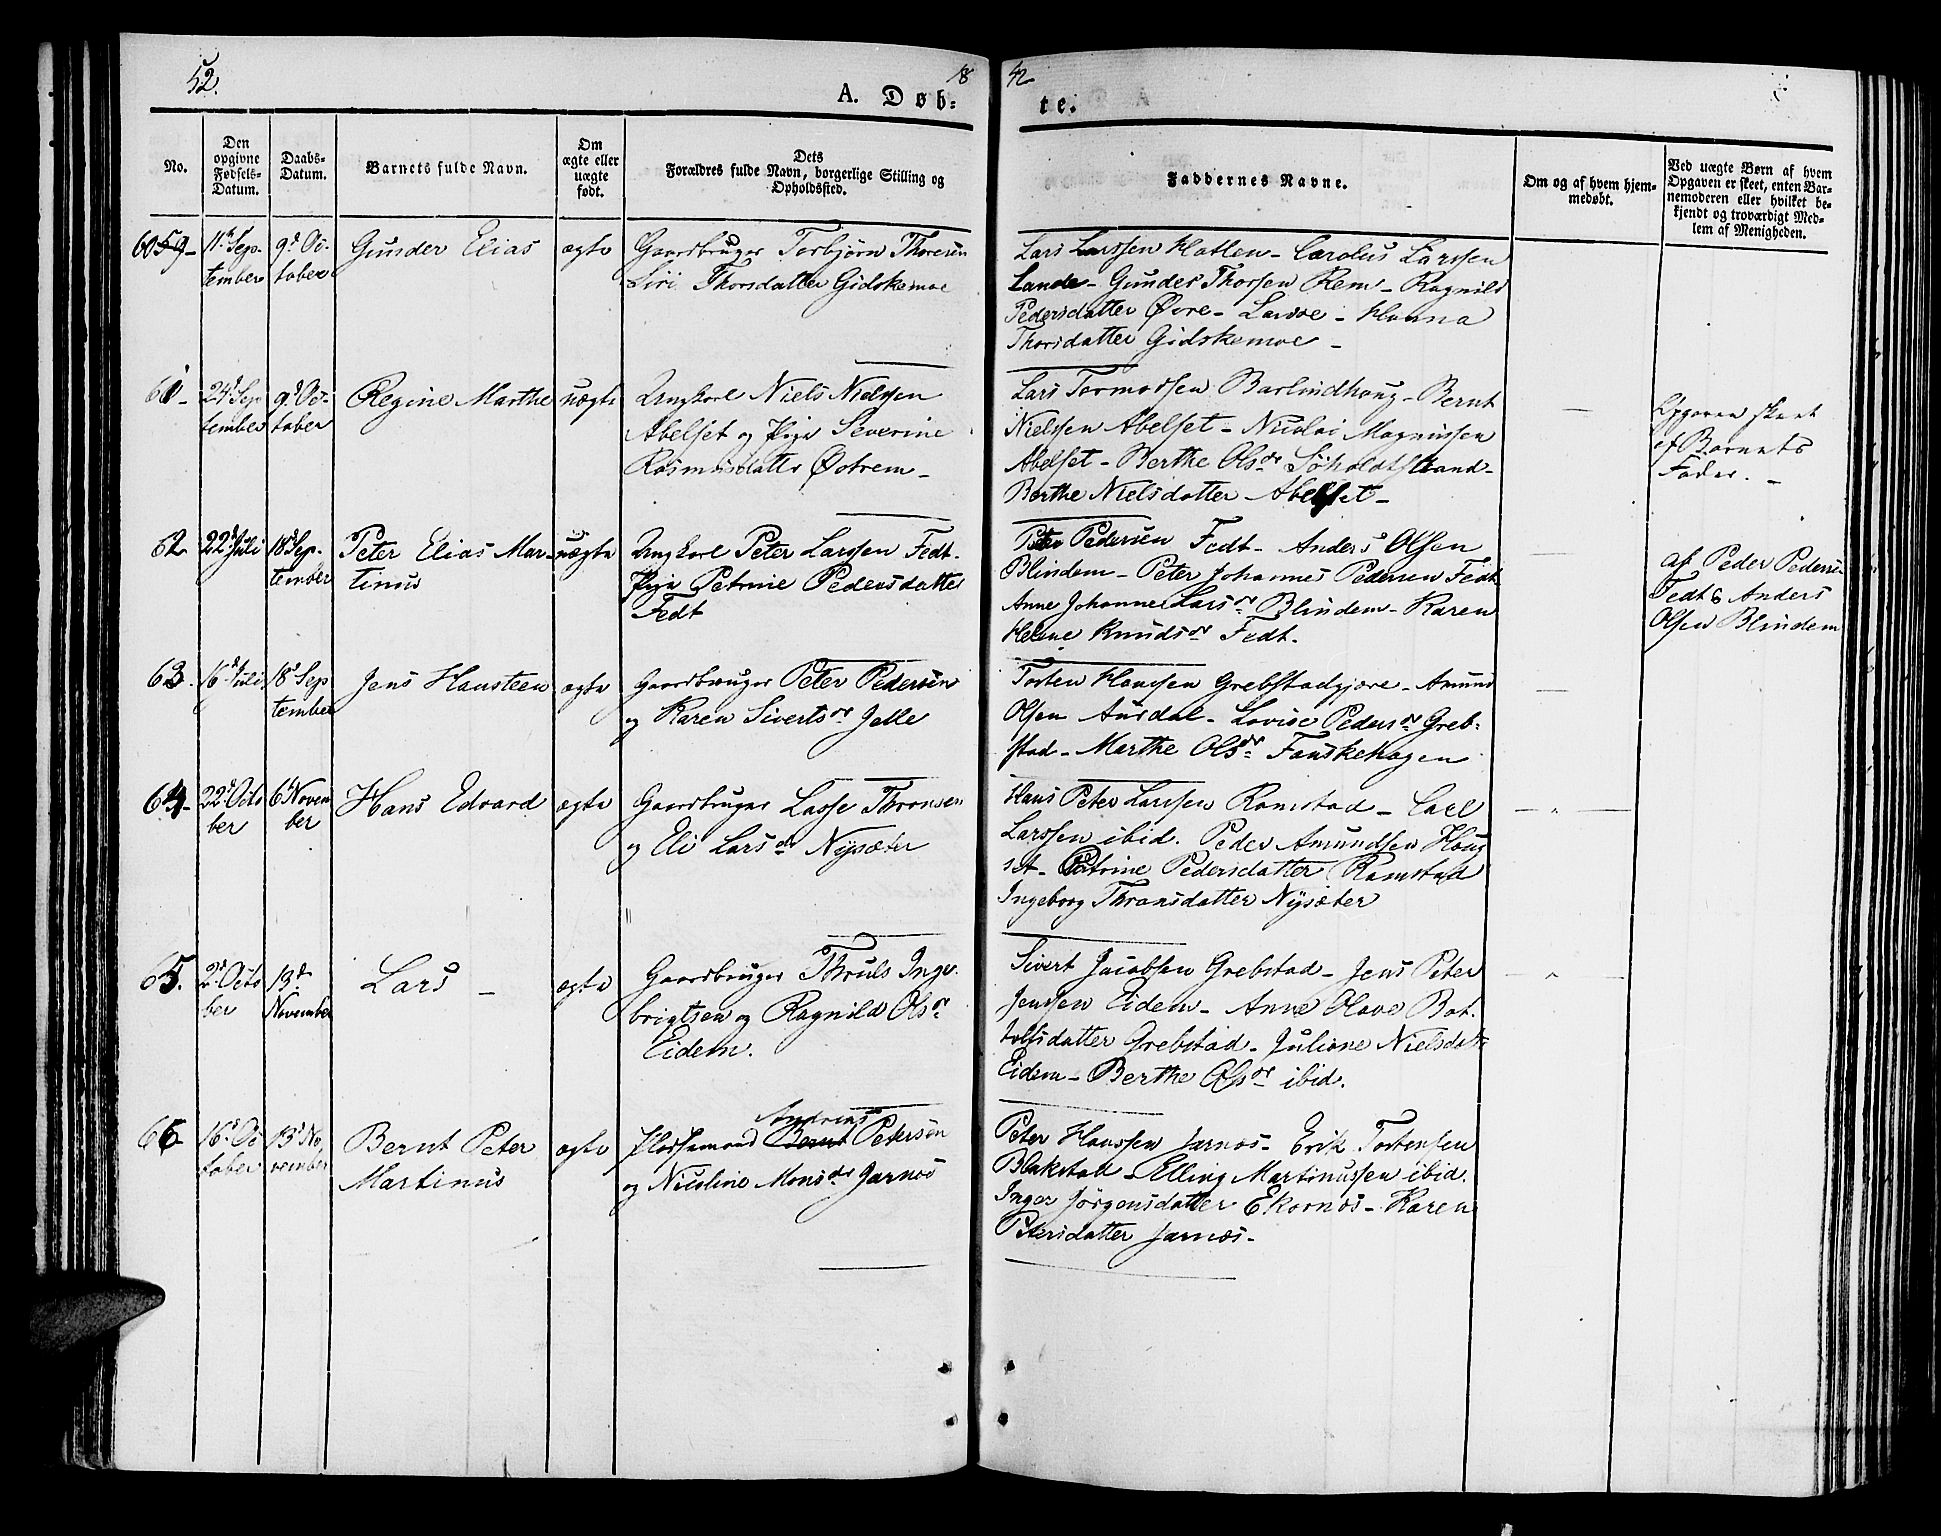 52.
18
42
A. Døb-
te.
No.
Den opgivne Fødsels-Datum.
Daabs-Datum.
Barnets fulde Navn.
Om ægte eller uægte født.
Dets Forældres fulde Navn, borgerlige Stilling og Opholdssted.
Faddernes Navne.
Om og af hvem hjem-
medøbt.
Ved uægte Børn af hvem
Opgaven er skeet, enten Bar-
nemoderen eller hvilket be-
kjendt og troværdigt Med-
lem af Menigheden.
60 59 11te Sep-
tember
9d Oc-
tober
Gunder Elias
ægte
Gaardbruger Torbjørn Thoresen
Siri Thorsdatter Gidskemoe
Lars Larssen Hatlen - Carolus Larssen
Lande - Gunder Thorsen Rem - Ragnild
Pedersdatter Øvre - Larsoe - Hanna
Thorsdatter Gidskemoe -
61 - 24d Sep
tember
9d Oc-
tober
Regine Marthe
uægte
Ungkarl Niels Nielssen
Abelset og Pige Severine
Rasmusdatter Østrem -
Lars Tormodsen Barlindhoug - Bernt
Nielssen Abelset - Nicolai Magnussen
Abelset - Berthe Olsdr Søholdtstrand -
Berthe Nielsdatter Abelset -
Opgaven skeet
af Barnets
Fader. -
62 22d Juli
18d Sep-
tember
Peter Elias Mar-
tinus
uægte
Ungkarl Peter Larssen Fedt.
Pige Petrine Pedersdatter
Fedt
Peter Pedersen Fedt - Anders Olsen
Blindem - Peter Johannes Pedersen Fedt
Anne Johanne Larsdr Blindem - Karen
Helene Knudsdr Fedt.
af Peder Peders-
Fedt & Anders
Olsen Blindem
63. 16d Juli
18d Sep
tember
Jens Hansteen
ægte
Gaardbruger Peter Pedersen
og Karen Sivertsdr Jelle
Torsten Hanssen Grebstadgjære - Amund
Olsen Aurdal - Lovise Pedersdr Greb-
stad - Marthe Olsdr Fauskehagen
64 - 22d Octo
ber
6d Novem
ber
Hans Edvard
ægte
Gaardbruger Lasse Thronsen
og Eli Larsdr Nysæter
Hans Peter Larssen Ramstad - Carl
Larssen ibid. Peder Amundsen Houg
set - Petrine Pedersdatter Ramstad
Ingeborg Thronsdatter Nysæter
65. 2d Octo
ber
13d
November
Lars -
ægte
Gaardbruger Thruls Inge-
brigtsen og Ragnild Olsdr
Eidem.
Sivert Jacobsen Grebstad - Jens Peter
Jenssen Eidem - Anne Olave Bot-
tolfsdatter Grebstad - Juliane Nielsdatr
Eidem - Berthe Olsdr ibid.
66 16d Oc
tober
13d No
vember
Bernt Peter
Martinus
ægte
Andreas
Pladsemand Bernt Petersen
og Nicoline Monsdr Jarnes
Peter Hanssen Jarnes - Erik Torstensen
Blakstad - Elling Martinussen ibid.
Inger Jørgensdatter Ekornes - Karen
Petersdatter Jarnes -